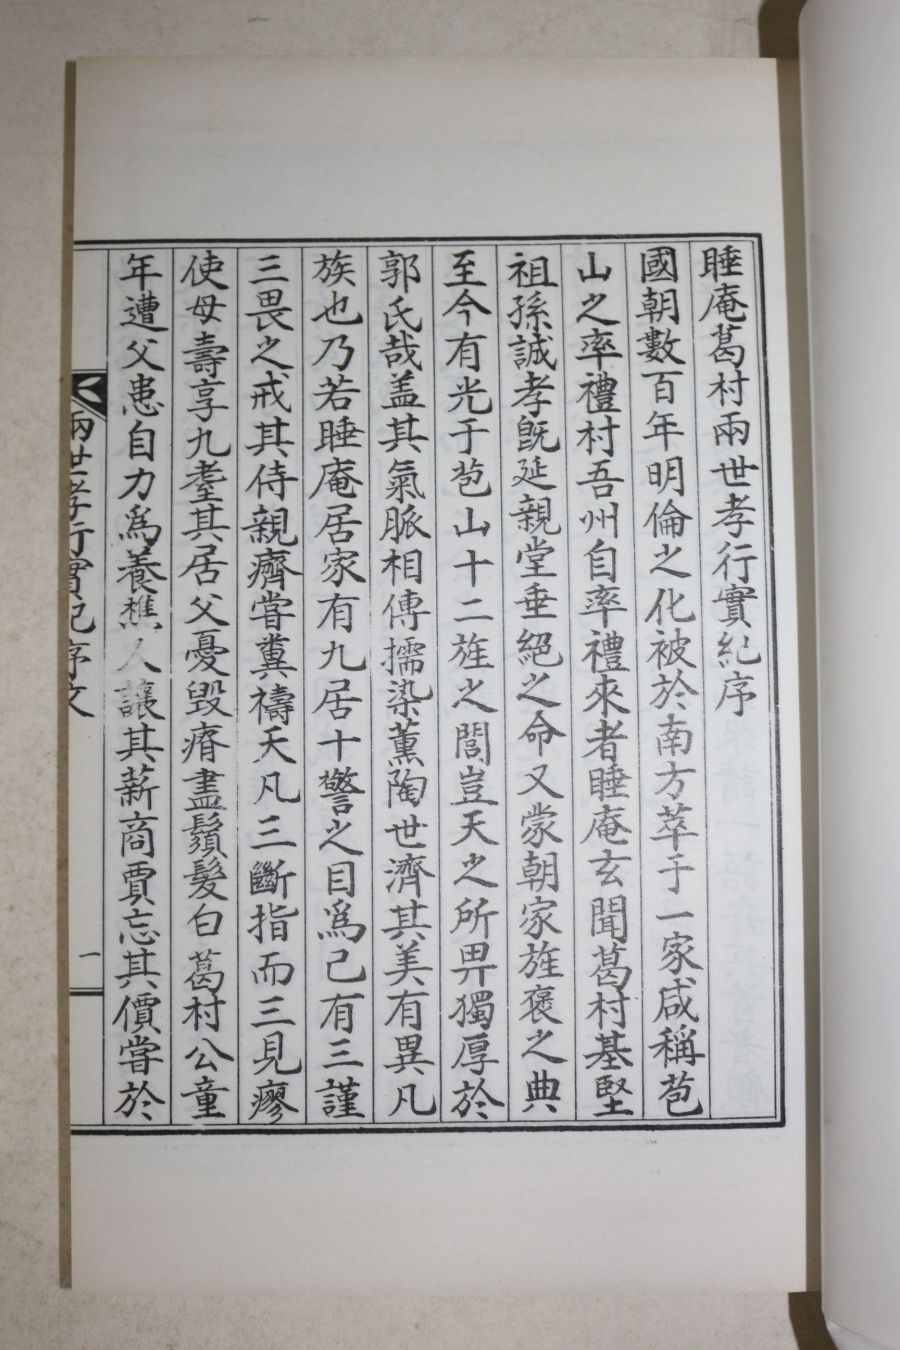 睡庵葛村兩世孝行實紀序
國朝數百年明倫之化被於南方萃于一家咸稱苞
山之率禮村吾州自率禮來者睡庵玄聞葛村基堅
祖孫誠孝旣延親堂垂絕之命又蒙朝家旌褒之典
至今有光于苞山十二旌之閭豈天之所畀獨厚於
郭氏哉盖其氣脈相傳擩染薰陶世濟其美有異凡
族也乃若睡庵居家有九居十警之目爲己有三謹
三畏之戒其侍親癠嘗糞禱天凡三斷指而三見瘳
使母壽享九耋其居父憂毀瘠盡鬚髮白葛村公童
年遭父患自力爲養樵人讓其薪商賈忘其價嘗於
兩世孝行實紀序文
一